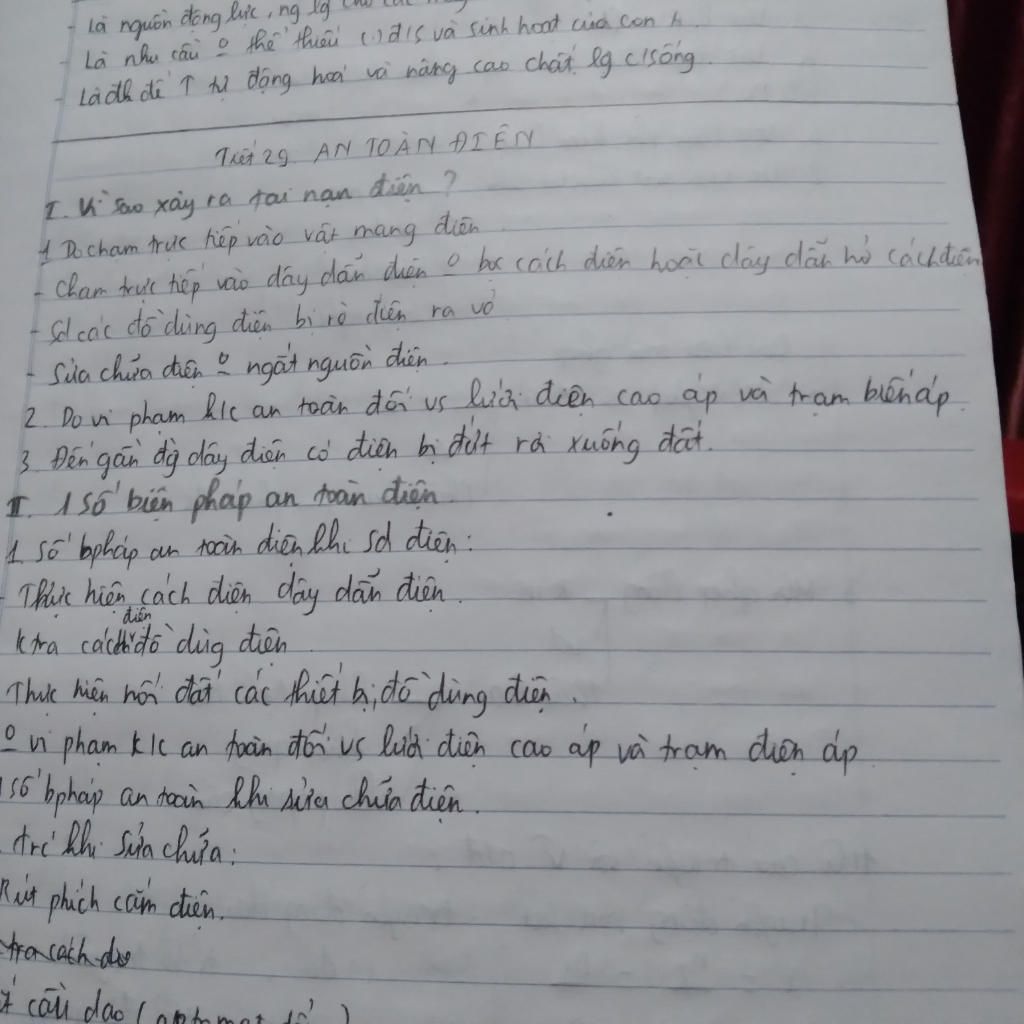 - Là nguồn động lực, ng lg cho các
- Là nhu cầu o thể thiếu (.) đ/s và sinh hoạt của con
- Là đk để ↑ tự động hoá và nâng cao chất lg c/sống.
Tiết 29. AN TOÀN ĐIỆN
I. Vì sao xảy ra tai nạn điện ?
1 Do chạm trực tiếp vào vật mang điện
- Chạm trực tiếp vào dây dẫn điện o bọc cách điện hoặc dây dẫn hở cách điện
- Sd các đồ dùng điện bị rò điện ra vỏ
- Sửa chữa điện o ngắt nguồn điện.
2. Do vi phạm k/c an toàn đối vs lưới điện cao áp và trạm biến áp.
3. Đến gần đg dây điện có điện bị đứt rơi xuống đất.
II. 1 số biện pháp an toàn điện.
1 số bpháp an toàn điện khi sd điện:
- Thực hiện cách điện dây dẫn điện.
K tra cách điện đồ dùg điện
Thực hiện nối đất các thiết bị, đồ dùng điện.
o vi phạm k/c an toàn đối vs lưới điện cao áp và trạm điện áp
1 số bpháp an toàn khi sửa chữa điện.
. trc khi sửa chữa:
Rút phích cắm điện.
tra cách
cầu dao (aptomat